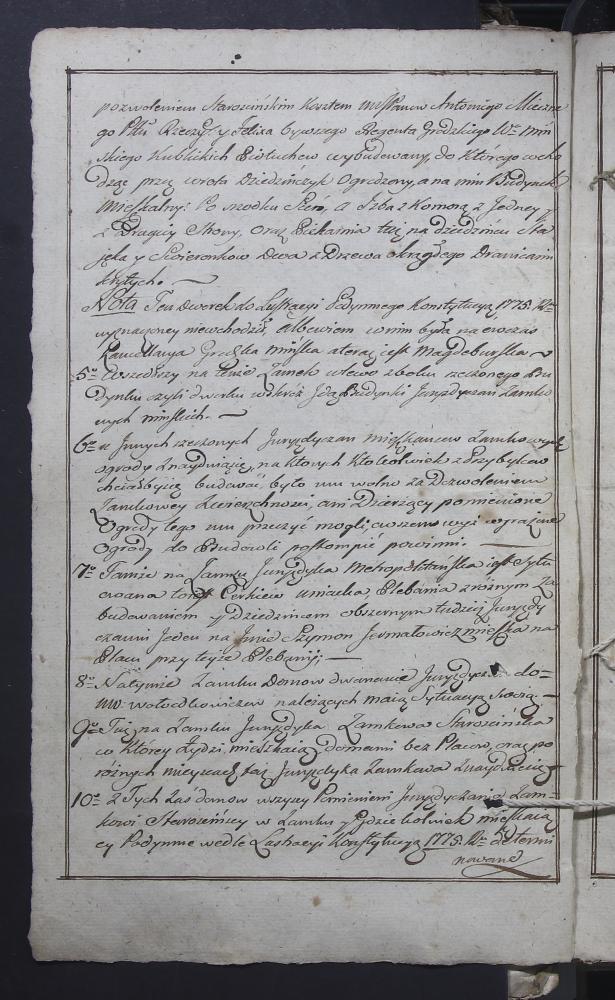 pozwoleniem Starościńskim kosztem Antoniego
go Pttu Rzeczyc: y Felixa bywszego Regenta Grodzkiego Wo Miń
skiego Kublickich Piotuchow wybudowany, do którego wcho
dząc przez wrota Dziedzińczyk Ogrodzony, a na nim Budynek
Mięszkalny: Po srodku Sień, a Izba z Komorą z Jedney y
z Drugiey Strony, oraz Piekarnia tuż na dziedzińcu Sta
jęka y Swieronkow Dwa z Drzewa okrągłego Dranicami
krytych. —
Nota Ten Dworek do Lustracyi Podymnego Konstytucyą 1775. Ru
wyznaczoney niewchodził, albowiem w nim była na ewczas
Kancellarya Grodzka mińska a teraz jest Magdeburska
5o Wszedłszy na tenże Zamek w lewo zboku rzeczonego Bu
dynku czyli dworku wskróż Idą Budynki Juryzdyczan Zamko
wych mińskich. —
6o u Innych rzeczonych Juryzdyczan mięszkancow Zamkowych
ogrody Znayduiąsię, na których Ktokolwiek z Przybylcow
chciałbysię budować, było mu wolno za Dozwoleniem
Zamkowey Zwierzchnosci, ani Dzierżący pomienione
Ogrody tego mu przeczyć mogli, owszem wyż wyrażone
Ogrody do Budowli postompić powinni. —
7o Tamże na Zamku Juryzdyka Metropolitańska jest Sytu
owana Cerkiew uniacka, Plebania z różnym Za
budowaniem y Dziedzińcem obszernym tudzież Juryzdy
czanin Jeden na Imie Szymon Jermołowicz mięszka na
Placu przy teyże Plebanij; —
8o Natymże Zamku Domow dwanascie Juryzdyczan do
JWW. Wołodkowiczow należących maią Sytuacyą Swoią —
9o Tuż na Zamku Juryzdyka Zamkowa Starościńska
w którey Żydzi mieszkaią z domami bez Placow, oraz po
różnych mieyscach taż Juryzdyka Zamkowa Znayduiesię
10o Z Tych zas domow wszyscy Pomienieni Juryzdyczanie Zam
kowi Starościńscy w Zamku y gdzie kolwiek mięszkaią
cy Podymne wedle Lustracyi Konstytucyą 1775. Ru determi
nowaney